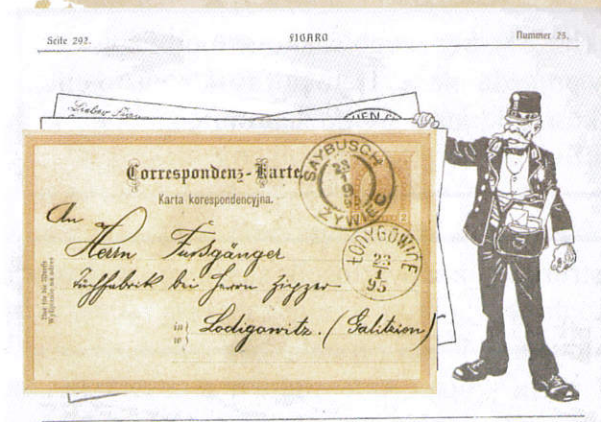 Seite 292. FIGARO Nummer 25.
Lieber
Correspondenz-Karte
Karta korespondencyjna.
SAYBUSCH
ŻYWIEC
ŁODYGOWICE
23
1
95
An
Herrn Fußgänger
Tuchfabrik bei Herrn Zipzer
in
w
Lodigowitz. (Galizien)